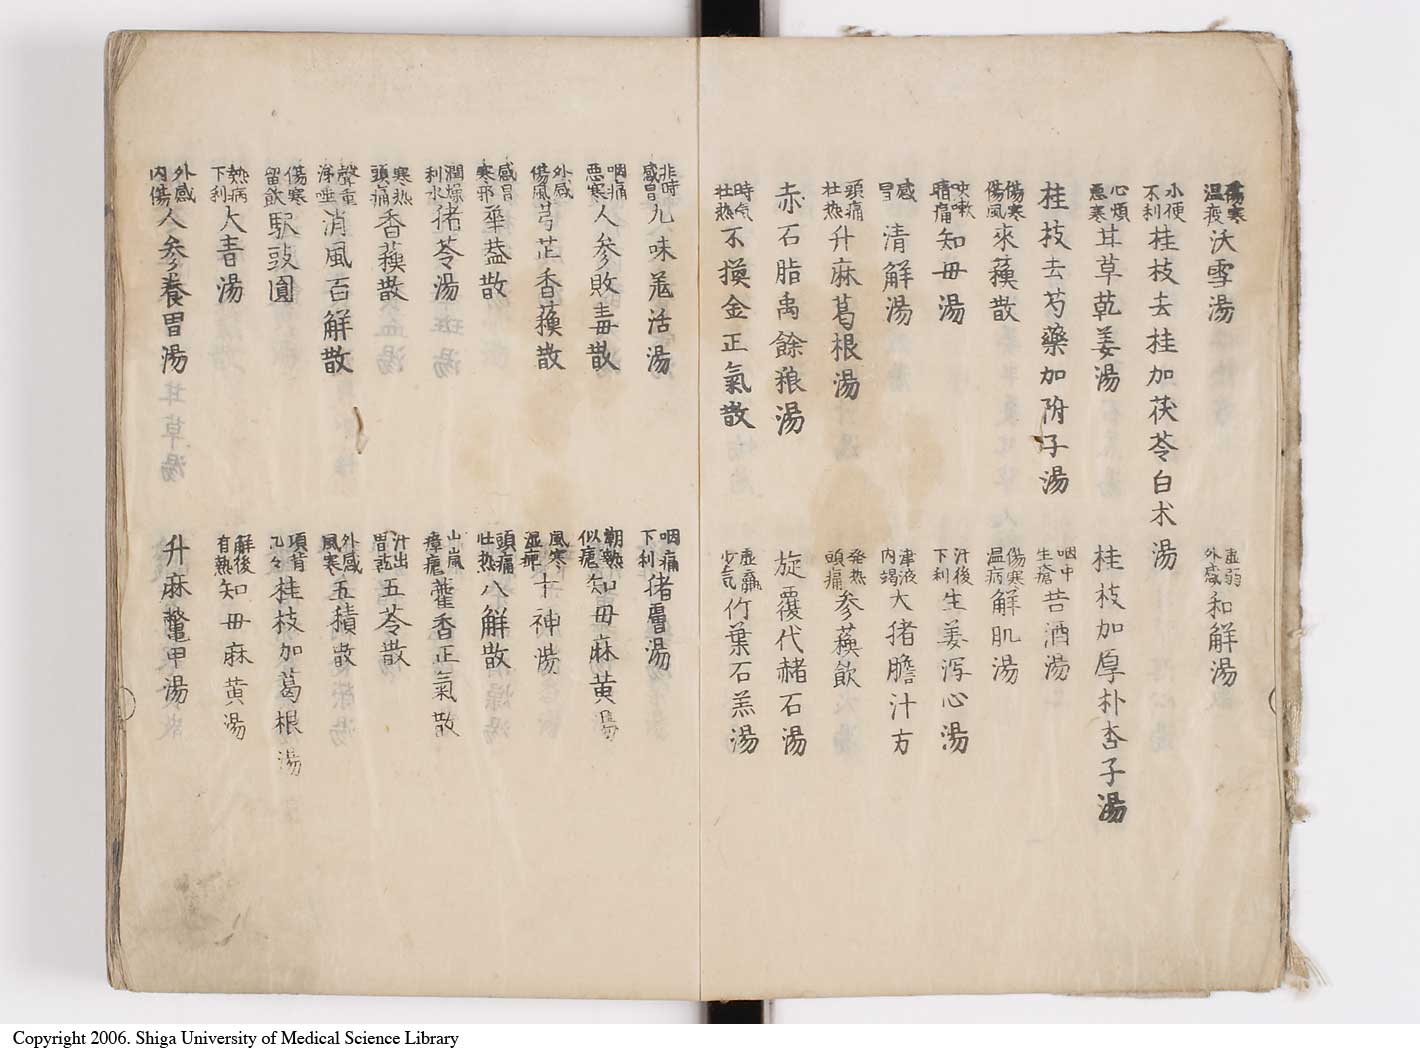 傷寒温疫沃雪湯
虚弱外感和解湯
小便不利桂枝去桂加茯苓白术湯
心煩悪寒甘草乾姜湯
桂枝加厚朴杏子湯
桂枝去芍藥加附子湯
咽中生瘡苦酒湯
傷寒傷風來蘓散
傷寒温病解肌湯
咳嗽痛知毋湯
汗後下利生姜瀉心湯
感冒清解湯
津液内竭大猪膽汁方
頭痛壮熱升麻葛根湯
発熱頭痛参蘓飲
赤石脂禹餘粮湯
旋覆代赭石湯
時気壮熱不換金正氣散
虚羸少気竹葉石羔湯
非時感冒九味羗活湯
咽痛下利猪膚湯
咽痛悪寒人参敗毒散
潮熱似瘧知毋麻黄湯
外感傷風芎芷香蘓散
風寒湿痺十神湯
感冒寒邪華蓋散
頭痛壮熱八解散
潤燥利水猪苓湯
山嵐瘴瘧藿香正氣散
寒熱頭痛香蘓散
汁出五苓散
聲重涕唾消風百解散
外感風寒五積散
傷寒留飲馭豉圓
項背几々桂枝加葛根湯
熱病下利大青湯
解後有熱知毋麻黄湯
外感内傷人参養胃湯
升麻鱉甲湯
Copyright 2006. Shiga University of Medical Science Library